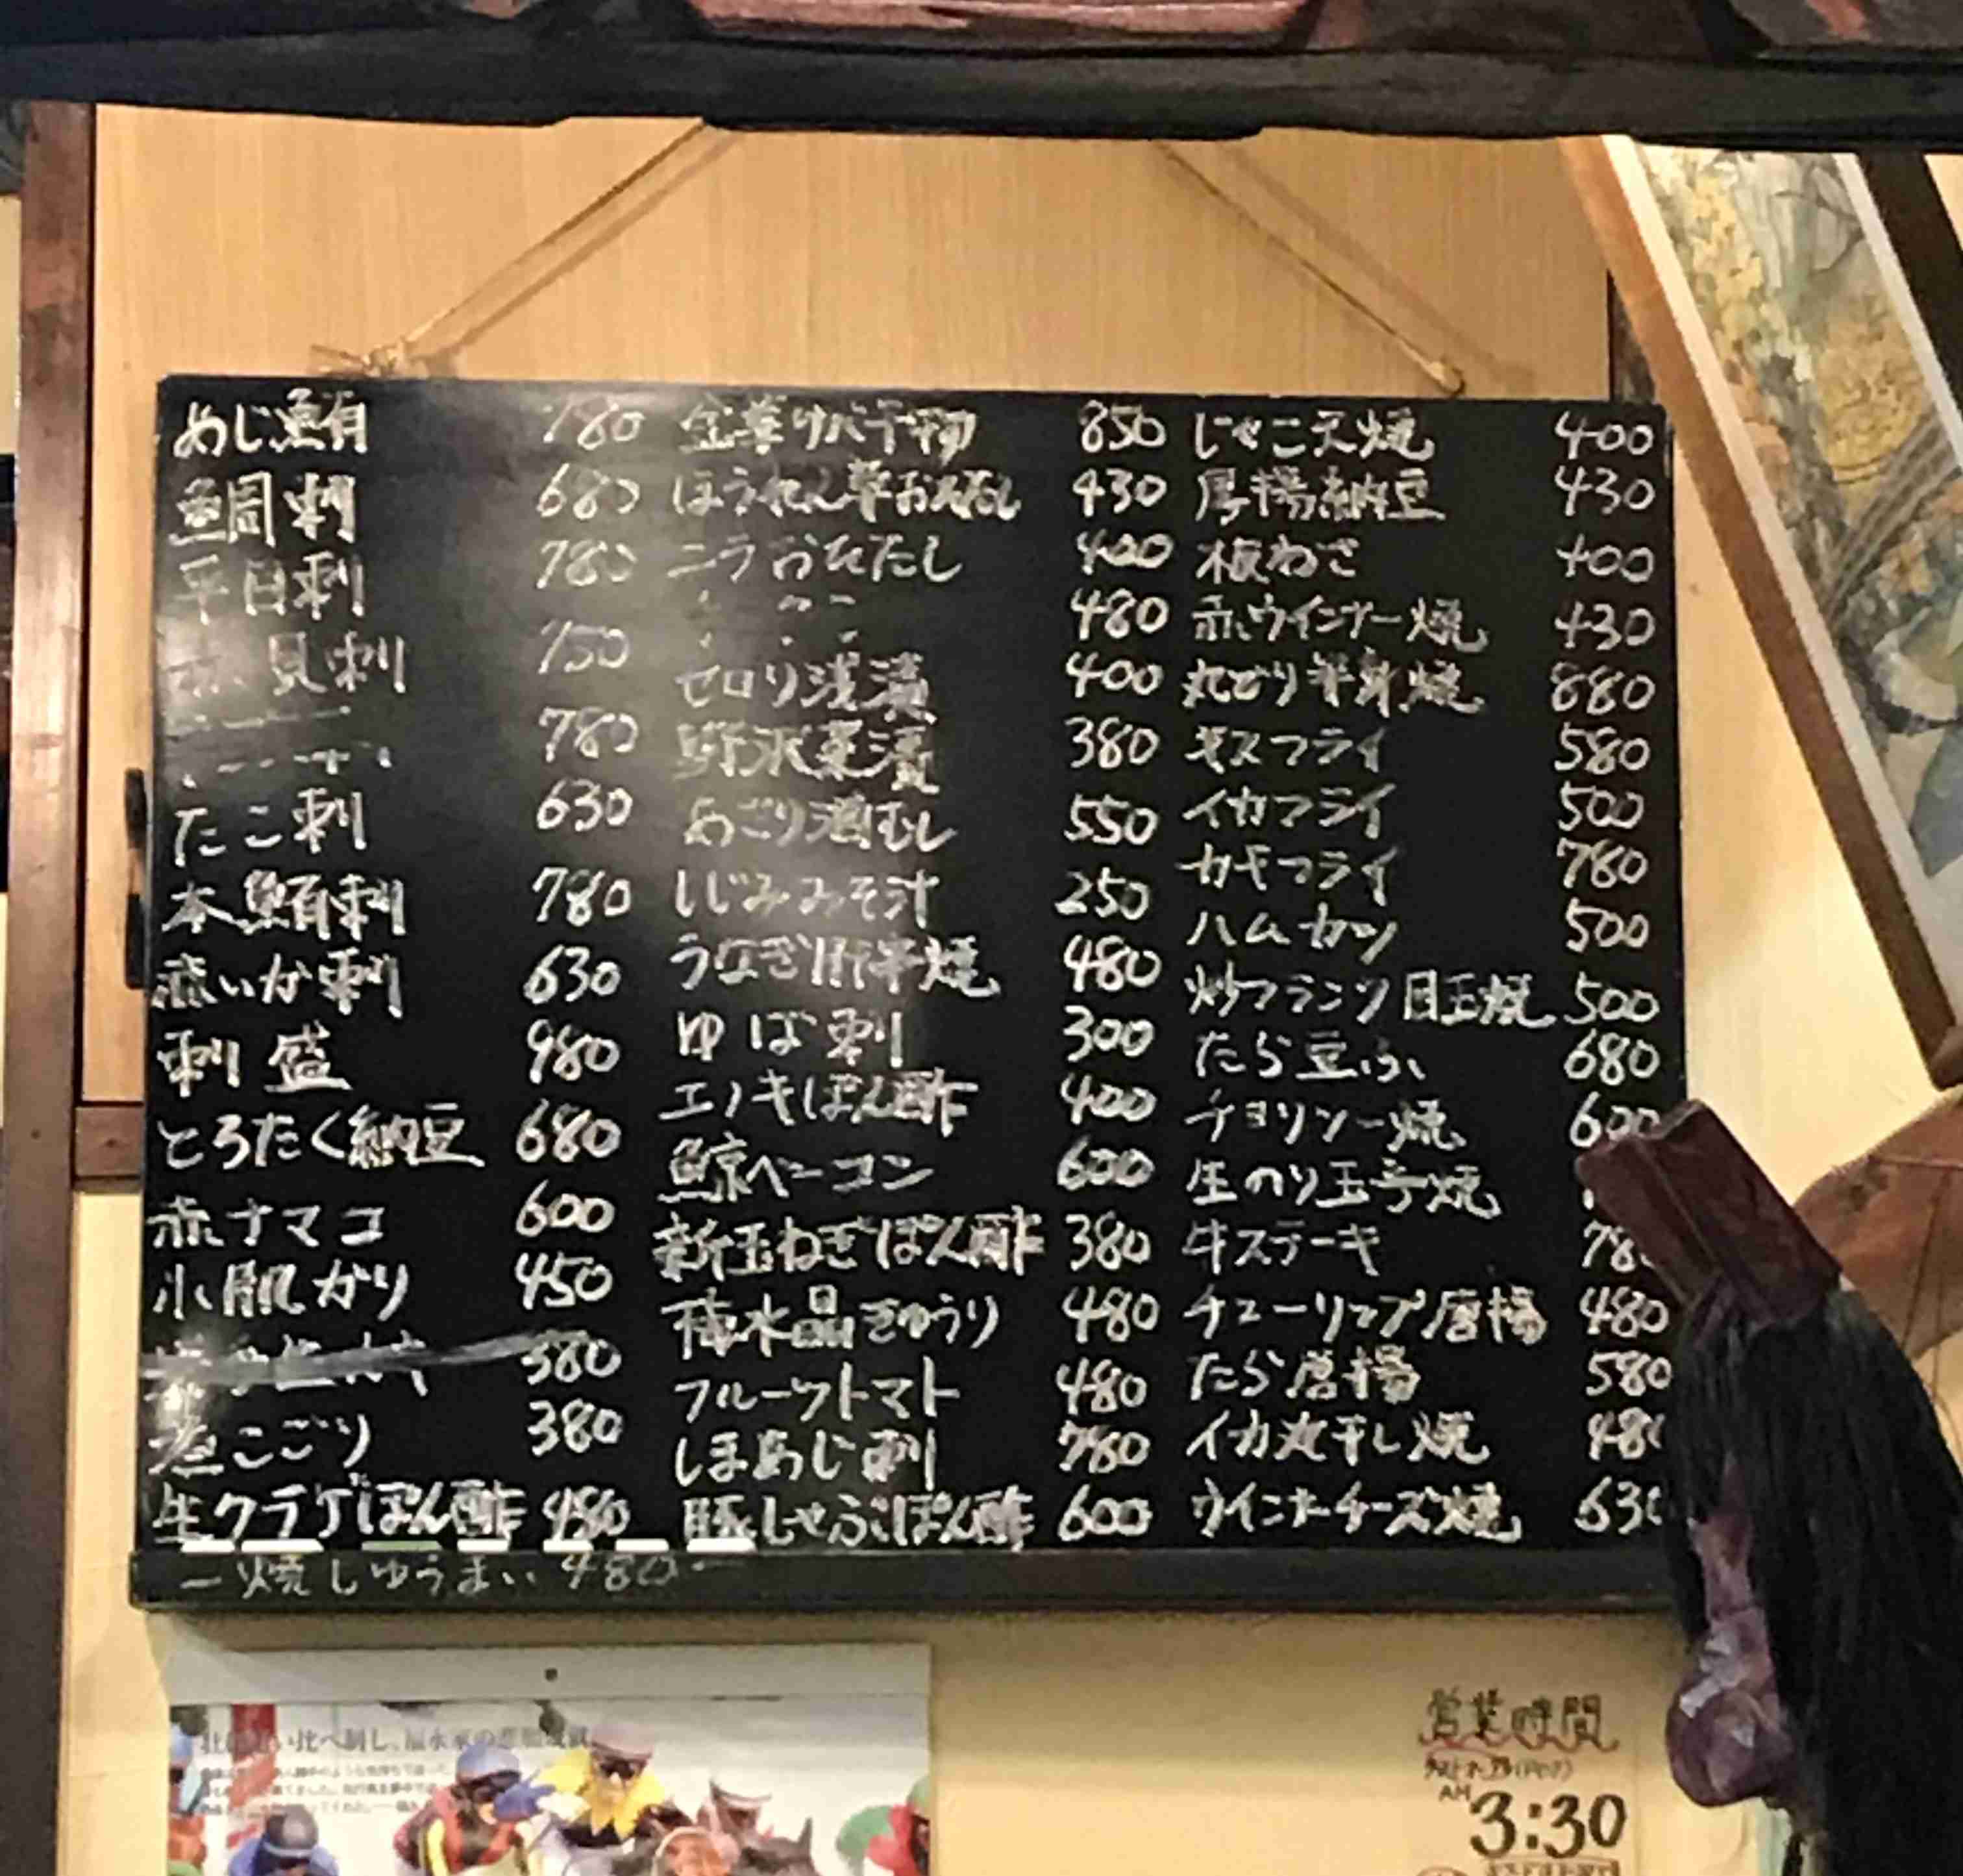 めじ鮪 780
鯛刺 680
平目刺 780
貝刺 750
780
たこ刺 630
本鮪刺 780
赤いか刺 630
刺盛 980
とろたく納豆 680
赤ナマコ 600
小肌がり 450
380
煮こごり 380
生クラゲぽん酢 480
焼しゅうまい 480
金華サバ干物 850
ほうれん草おひたし 430
ニラおひたし 400
480
セロリ浅漬 400
野沢菜漬 380
あさり酒むし 550
しじみみそ汁 250
うなぎ肝串焼 480
ゆば刺 300
エノキぽん酢 400
鯨ベーコン 600
新玉ねぎぽん酢 380
梅水晶きゅうり 480
フルーツトマト 480
しまあじ刺 780
豚しゃぶぽん酢 600
じゃこ天焼 400
厚揚納豆 430
板わさ 400
赤ウインナー焼 430
丸どり半身焼 880
キスフライ 580
イカフライ 500
カキフライ 780
ハムカツ 500
目玉焼 500
たら豆ふ 680
チョリソー焼 600
生のり玉子焼
牛ステーキ 780
チューリップ唐揚 480
たら唐揚 580
イカ丸干し焼 480
ウインナーチーズ焼 630
営業時間
AM 3:30